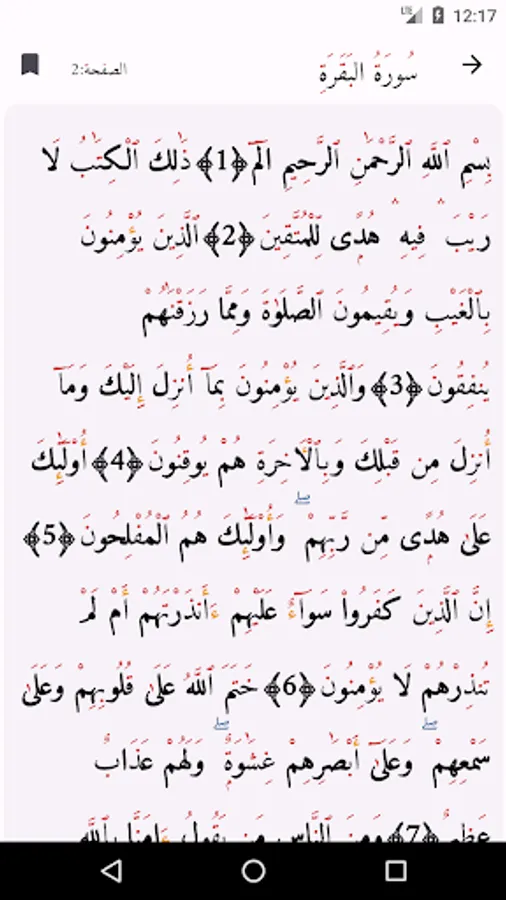 LTE 12:17
سُورَةُ البَقَرَةِ
الصفحة:2
بِسْمِ ٱللَّهِ ٱلرَّحْمَٰنِ ٱلرَّحِيمِ الٓمٓ ﴿1﴾ ذَٰلِكَ ٱلْكِتَٰبُ لَا
رَيْبَ ۛ فِيهِ ۛ هُدًى لِّلْمُتَّقِينَ ﴿2﴾ ٱلَّذِينَ يُؤْمِنُونَ
بِٱلْغَيْبِ وَيُقِيمُونَ ٱلصَّلَوٰةَ وَمِمَّا رَزَقْنَٰهُمْ
يُنفِقُونَ ﴿3﴾ وَٱلَّذِينَ يُؤْمِنُونَ بِمَآ أُنزِلَ إِلَيْكَ وَمَآ
أُنزِلَ مِن قَبْلِكَ وَبِٱلْأَخِرَةِ هُمْ يُوقِنُونَ ﴿4﴾ أُوْلَٰٓئِكَ
عَلَىٰ هُدًى مِّن رَّبِّهِمْ ۖ وَأُوْلَٰٓئِكَ هُمُ ٱلْمُفْلِحُونَ ﴿5﴾
إِنَّ ٱلَّذِينَ كَفَرُوا۟ سَوَآءٌ عَلَيْهِمْ ءَأَنذَرْتَهُمْ أَمْ لَمْ
تُنذِرْهُمْ لَا يُؤْمِنُونَ ﴿6﴾ خَتَمَ ٱللَّهُ عَلَىٰ قُلُوبِهِمْ وَعَلَىٰ
سَمْعِهِمْ ۖ وَعَلَىٰٓ أَبْصَٰرِهِمْ غِشَٰوَةٌ ۖ وَلَهُمْ عَذَابٌ
عَظِيمٌ ﴿7﴾ وَمِنَ ٱلنَّاسِ مَن يَقُولُ ءَامَنَّا بِٱللَّهِ